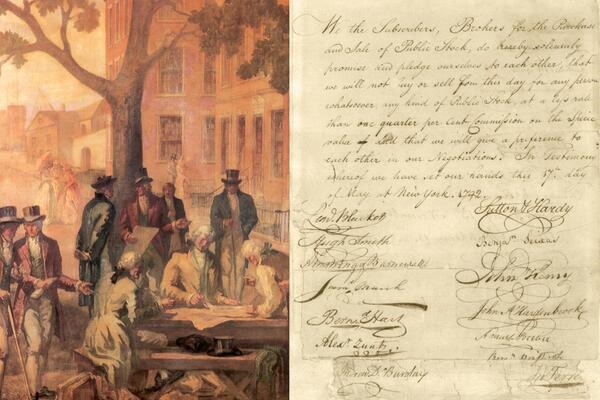 We the Subscribers, Brokers for the Purchase
and Sale of Public Stock, do hereby solemnly
promise and pledge ourselves to each other, that
we will not buy or sell from this day for any person
whatsoever any kind of Public Stock, at a less rate
than one quarter per Cent Commission on the Specie
value and that we will give a preference to
each other in our Negotiations. In Testimony
whereof we have set our hands this 17th day
of May at New York. 1792.
Leod. Bleecker
Hugh Smith
Armstrong & Barnewall
March
Bernd Hart
Alexr Zuntz
Andrew D. Barclay
Sutton & Hardy
Benjn Seixas
John Henry
John A Hardenbrook